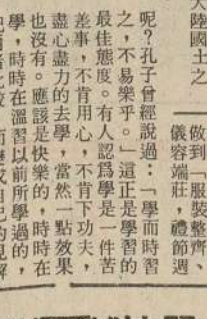 大陸國土之
做到「服裝整齊、
儀容端莊，禮節週
呢？孔子曾經說過：「學而時習
之，不易樂乎。」這正是學習的
最佳態度。有人認爲學是一件苦
差事，不肯用心，不肯下功夫，
盡心盡力的去學，當然一點效果
也沒有。應該是快樂的，時時在
學，時時在溫習以前所學過的，